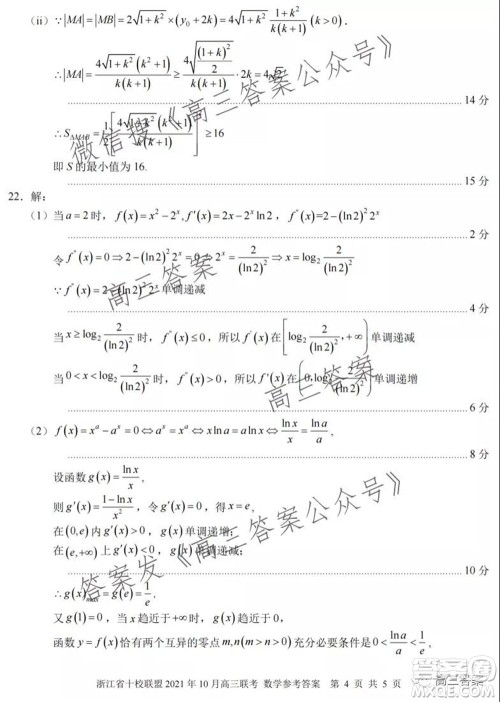 (ii) ∵|MA|=|MB|=2√(1+k²)×(y₀+2k)=4√(1+k²)·(1+k²)/(k(k+1)) (k>0).
∴|MA|=4√(1+k²)(k²+1)/(k(k+1))≥4√((1+k)²/2)/(k(k+1))·2k=4√2,
14 分
∴S△MAB=1/2[4√(1+k²)(k²+1)/(k(k+1))]²≥16
即 S 的最小值为 16.
15 分
22．解:
(1) 当 a=2 时, f(x)=x²-2ˣ, f'(x)=2x-2ˣ ln2, f''(x)=2-(ln2)²2ˣ
2 分
令 f''(x)=0⇒2-(ln2)²2ˣ=0⇒2ˣ=2/(ln2)²⇒x=log₂ 2/(ln2)²
∵f''(x)=2-(ln2)²2ˣ 单调递减
4 分
当 x≥log₂ 2/(ln2)² 时, f''(x)≤0, 所以 f'(x) 在 [log₂ 2/(ln2)²,+∞) 单调递减
当 0<x<log₂ 2/(ln2)² 时, f''(x)>0, 所以 f'(x) 在 (0,log₂ 2/(ln2)²) 单调递增
6 分
(2) f(x)=xᵃ-aˣ=0⇔aˣ=xᵃ⇔x ln a=a ln x⇔ln x/x=ln a/a,
8 分
设函数 g(x)=ln x/x,
则 g'(x)=(1-ln x)/x², 令 g'(x)=0, 得 x=e,
在(0,e)内 g'(x)>0, g(x) 单调递增;
在(e,+∞)上 g'(x)<0, g(x) 单调递减;
10 分
∴g(x)max=g(e)=1/e,
又 g(1)=0, 当 x 趋近于+∞时, g(x) 趋近于 0,
函数 y=f(x) 恰有两个互异的零点 m,n(m>n) 充分必要条件是 0<ln a/a<1/e,
浙江省十校联盟 2021 年 10 月高三联考 数学参考答案 第 4 页 共 5 页
微信搜《高三答案公众号》
高三答案
高三答案
答案发《高三答案公众号》
高三答案